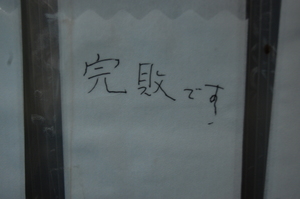 完敗です!